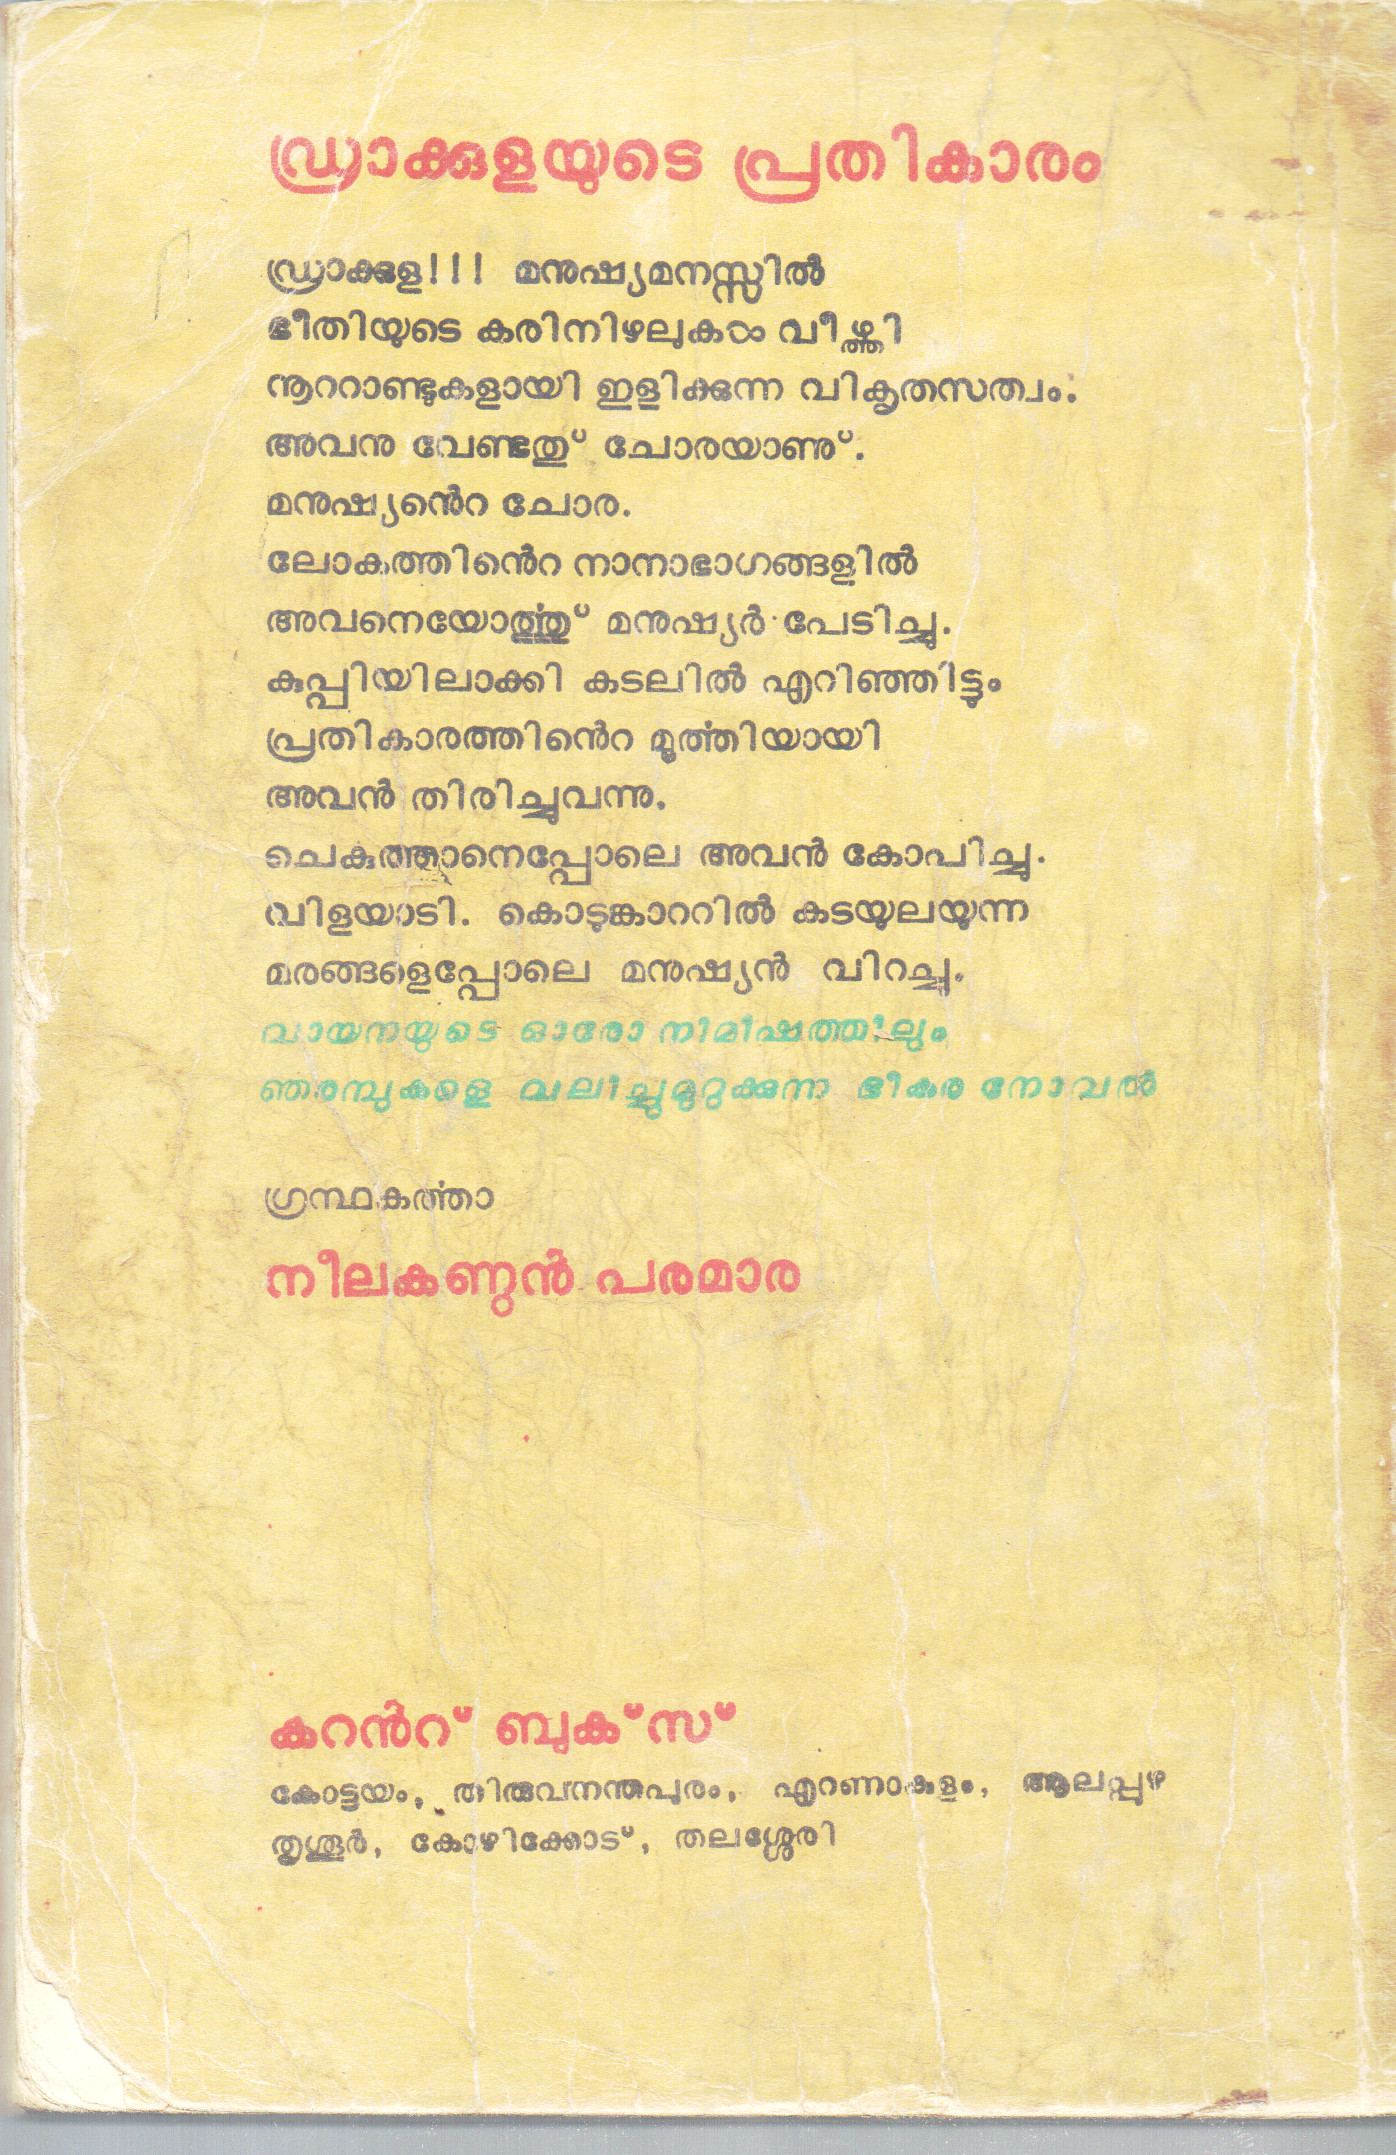 ഡ്രാക്കുളയുടെ പ്രതികാരം
ഡ്രാക്കുള!!! മനുഷ്യമനസ്സിൽ
ഭീതിയുടെ കരിനിഴലുകൾ വീഴ്ത്തി
നൂററാണ്ടുകളായി ഇളിക്കുന്ന വികൃതസത്വം.
അവനു വേണ്ടതു് ചോരയാണു്.
മനുഷ്യൻെറ ചോര.
ലോകത്തിൻെറ നാനാഭാഗങ്ങളിൽ
അവനെയോൎത്തു് മനുഷ്യർ പേടിച്ചു.
കുപ്പിയിലാക്കി കടലിൽ എറിഞ്ഞിട്ടും
പ്രതികാരത്തിൻെറ മൂൎത്തിയായി
അവൻ തിരിച്ചുവന്നു.
ചെകുത്താനെപ്പോലെ അവൻ കോപിച്ചു.
വിളയാടി. കൊടുങ്കാററിൽ കടയുലയുന്ന
മരങ്ങളെപ്പോലെ മനുഷ്യൻ വിറച്ചു.
വായനയുടെ ഓരോ നിമിഷത്തിലും
ഞരമ്പുകളെ വലിച്ചുമുറുക്കുന്ന ഭീകര നോവൽ
ഗ്രന്ഥകൎത്താ
നീലകണ്ഠൻ പരമാര
കറൻറ് ബുക്സ്
കോട്ടയം, തിരുവനന്തപുരം, എറണാകുളം, ആലപ്പുഴ
തൃശൂർ, കോഴിക്കോട്, തലശ്ശേരി